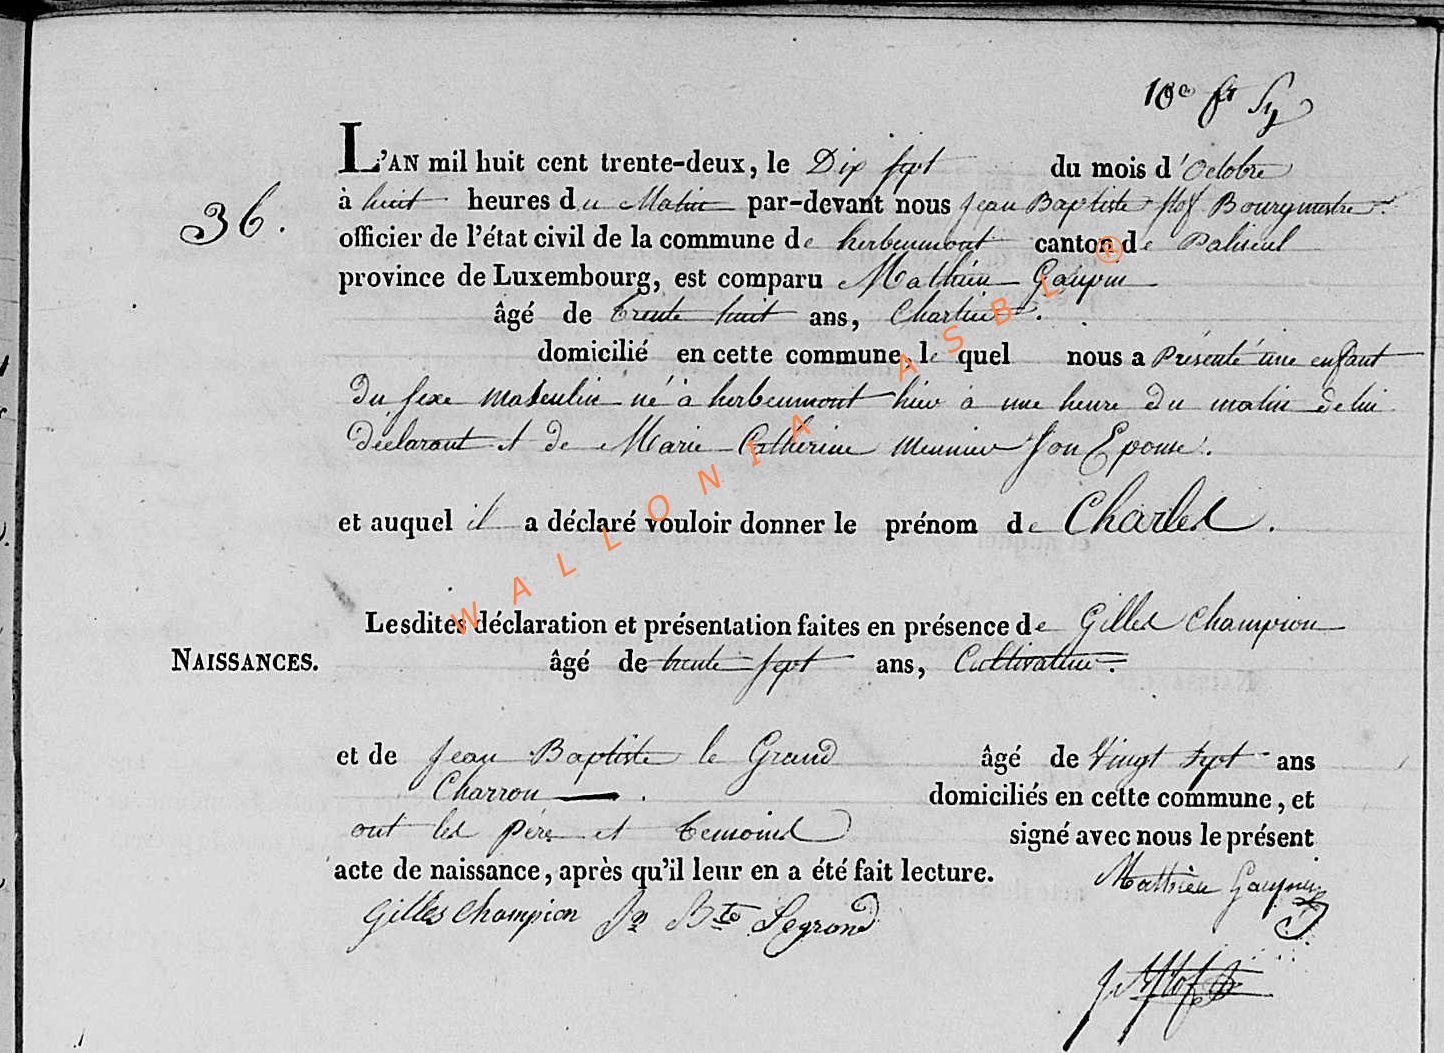 L'AN mil huit cent trente-deux, le Dix sept du mois d'Octobre
36.
à huit heures du Matin par-devant nous jean Baptiste Bourgmestre
officier de l'état civil de la commune de herbeumont canton de paliseul
province de Luxembourg, est comparu Mathieu Gaupin
âgé de trente huit ans,
domicilié en cette commune, le quel nous a présenté une enfant
du sexe masculin né à herbeumont hier à une heure du matin de lui
déclarant et de Marie Catherine meunier son Epouse.
et auquel il a déclaré vouloir donner le prénom de Charles.
Lesdites déclaration et présentation faites en présence de Gilles Champion
NAISSANCES.
âgé de trente sept ans, Cultivateur.
et de jean Baptiste le Grand âgé de Vingt sept ans
Charron domiciliés en cette commune, et
ont les père et temoins signé avec nous le présent
acte de naissance, après qu'il leur en a été fait lecture.
Mathieu Gaupin
Gilles champion Jn Bte Legrand
WALLONIA ASBL ®